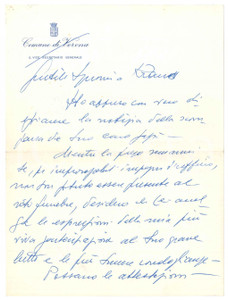 Comune di Verona
Gentile Signorina
Ho appreso con vivo di
spiacere la notizia della scom
parsa del Suo caro papà -
Mentre La prego scusarmi
se, per improrogabili impegni d'ufficio,
non ho potuto essere presente al
rito funebre, desidero
le espressioni della mia più
viva partecipazione al Suo grave
lutto e le più sincere condoglianze -
Possano le attestazioni